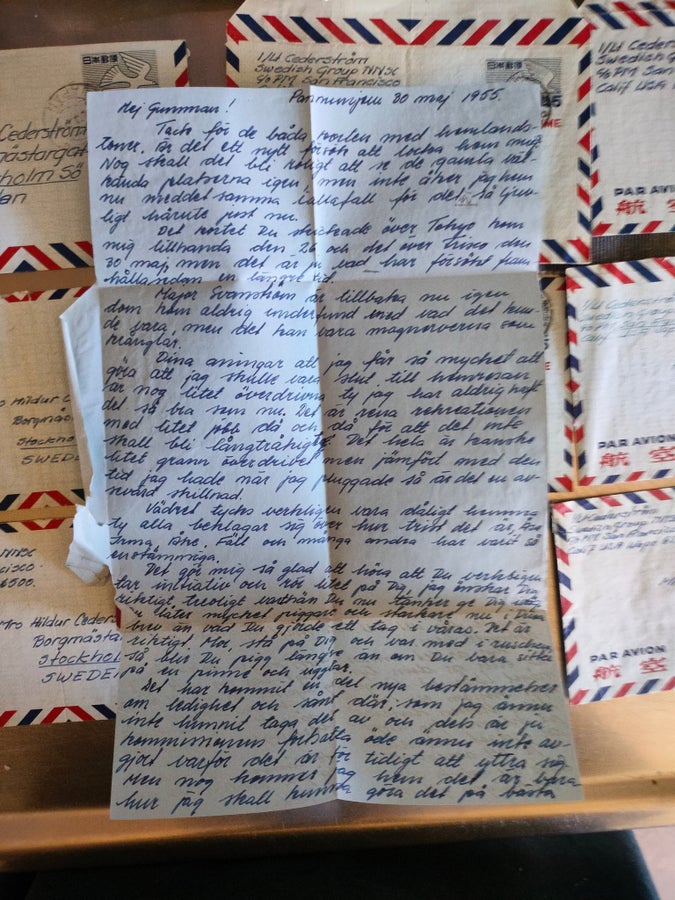 日本郵便
Cederström
mästargat
holm Sö
en
1/Lt Cederström
Swedish Group NNSC
c/o PM San Francisco
日本郵便
1/Lt Ceders
Swedish Gr
c/o PM San
Calif USA
PAR AVI
航空
Hej Gumman! Panmunjom 30 maj 1955.
Tack för de båda korten med hemlands-
toner. Är det ett nytt försök att locka hem mig.
Nog skall det bli roligt att se de gamla väl-
kända platserna igen, men inte åker jag hem
nu med det samma i alla fall för det är så ljuv-
ligt härute just nu.
Det kortet Du skickade över Tokyo kom
mig tillhanda den 26 och det över Frisco den
30 maj men det är ju vad har försökt fram
hållandan en längre tid.
Major Svanström är tillbaka nu igen
dom kom aldrig underfund med vad det kun-
de vara, men det kan vara magnerverna som
krånglar.
Dina aningar att jag får så mycket att
göra att jag skulle vara slut till hemresan
är nog litet överdrivna ty jag har aldrig haft
det så bra som nu. Det är rena rekreationen
med litet jobb då och då för att det inte
skall bli långtråkigt. Det hela är kanske
litet grann överdrivet men jämförd med den
tid jag hade när jag pluggade så är det en av-
sevärd skillnad.
Vädret tycks verkligen vara dåligt hemma
ty alla beklagar sig över hur trist det är,
Irma, Fäll och många andra har varit så
enstämmiga.
Det gör mig så glad att höra att Du verkligen
tar initiativ och rör litet på Dig, jag önskar Dig
riktigt trevligt varthän Du nu tänker ge Dig
låter mycket piggare och starkare nu i Dina
brev än vad Du gjorde ett tag i våras. Det är
riktigt Mor, stå på Dig och var med i ruschen
så blir Du pigg längre än om Du bara sitter
på en pinne och ugglar.
Det har kommit en del nya bestämmelser
om ledighet och sånt där, som jag ännu
inte hunnit taga del av och dels är ju
kommissionens fortsatta öde ännu inte av-
gjort varför det är för tidigt att yttra sig.
Men nog kommer jag hem det är bara
hur jag skall kunna göra det på bästa
Mrs Hildur Ce
Borgmäs
Stockho
SWED
PAR AVION
航空
NNSC
cisco
6500.
Mrs Hildur Ceder
Borgmästa
Stockhol
SWEDE
Cederström
PAR AVION
航空